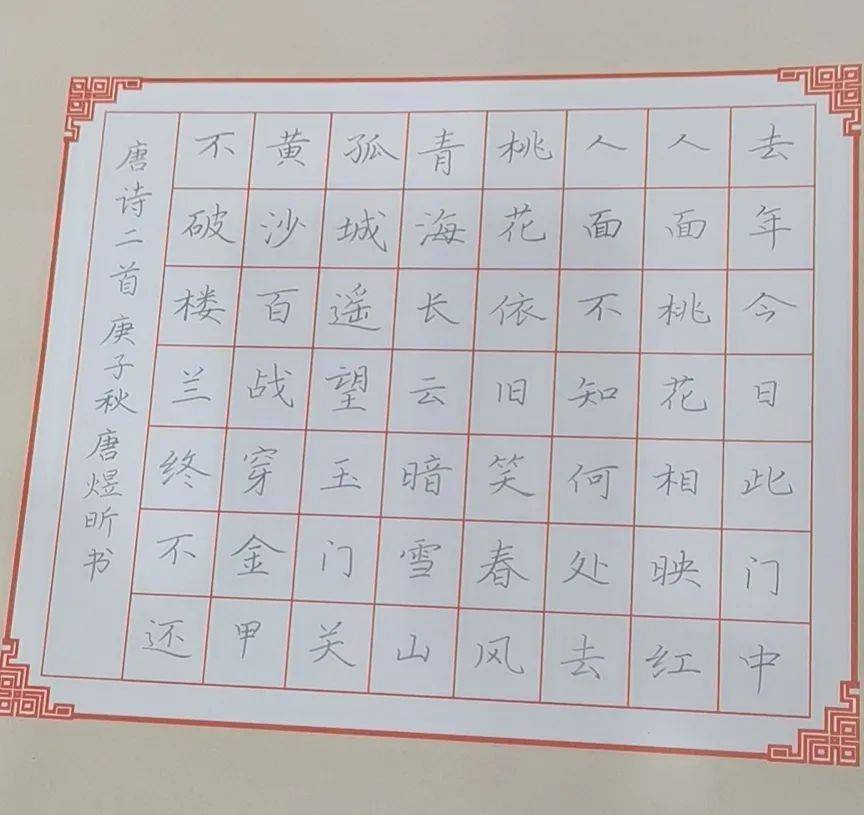 去年今日此门中
人面桃花相映红
人面不知何处去
桃花依旧笑春风
青海长云暗雪山
孤城遥望玉门关
黄沙百战穿金甲
不破楼兰终不还
唐诗二首庚子秋唐煜昕书